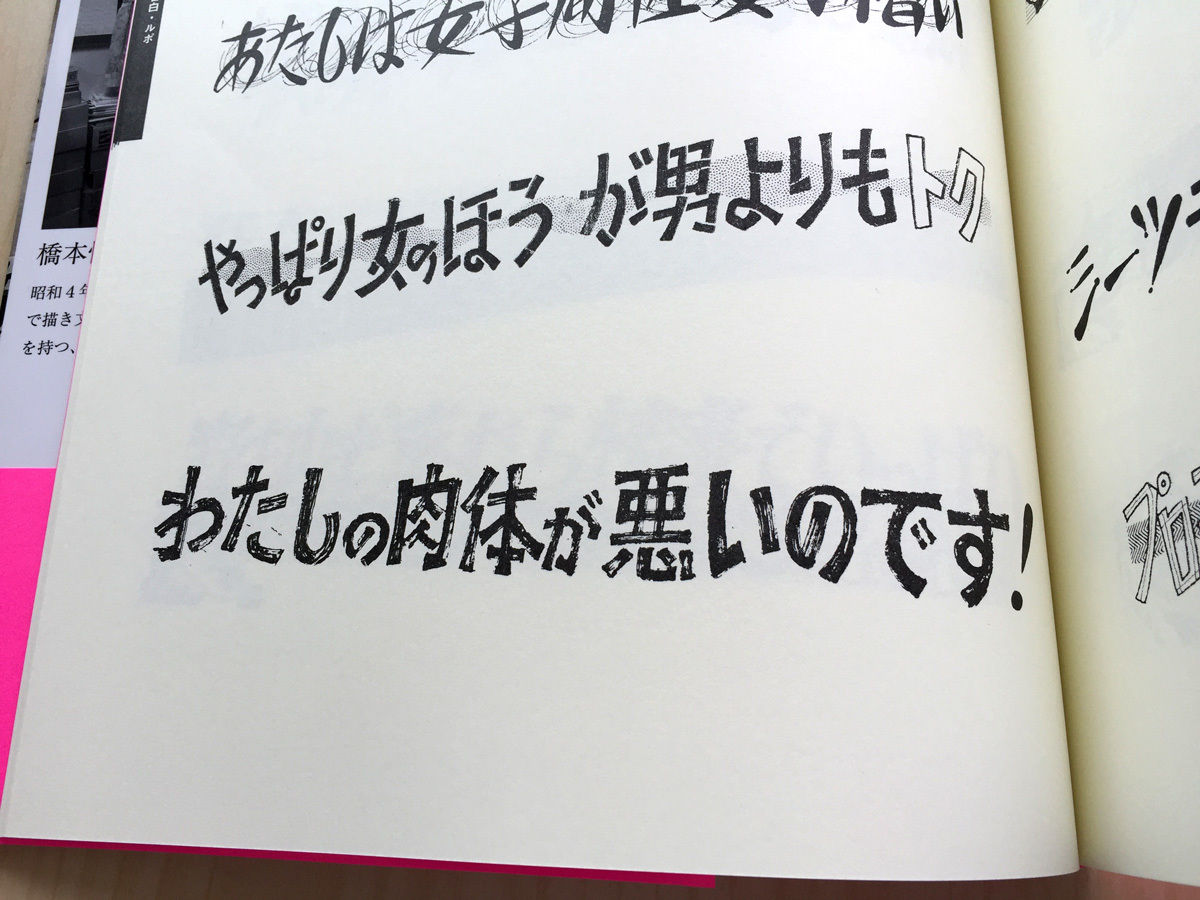 白・ルポ
あたしは女子同性愛の
やっぱり女のほうが男よりもトク
わたしの肉体が悪いのです!
橋本
昭和4年
で描き文
を持つ、
ミーツ
プロ